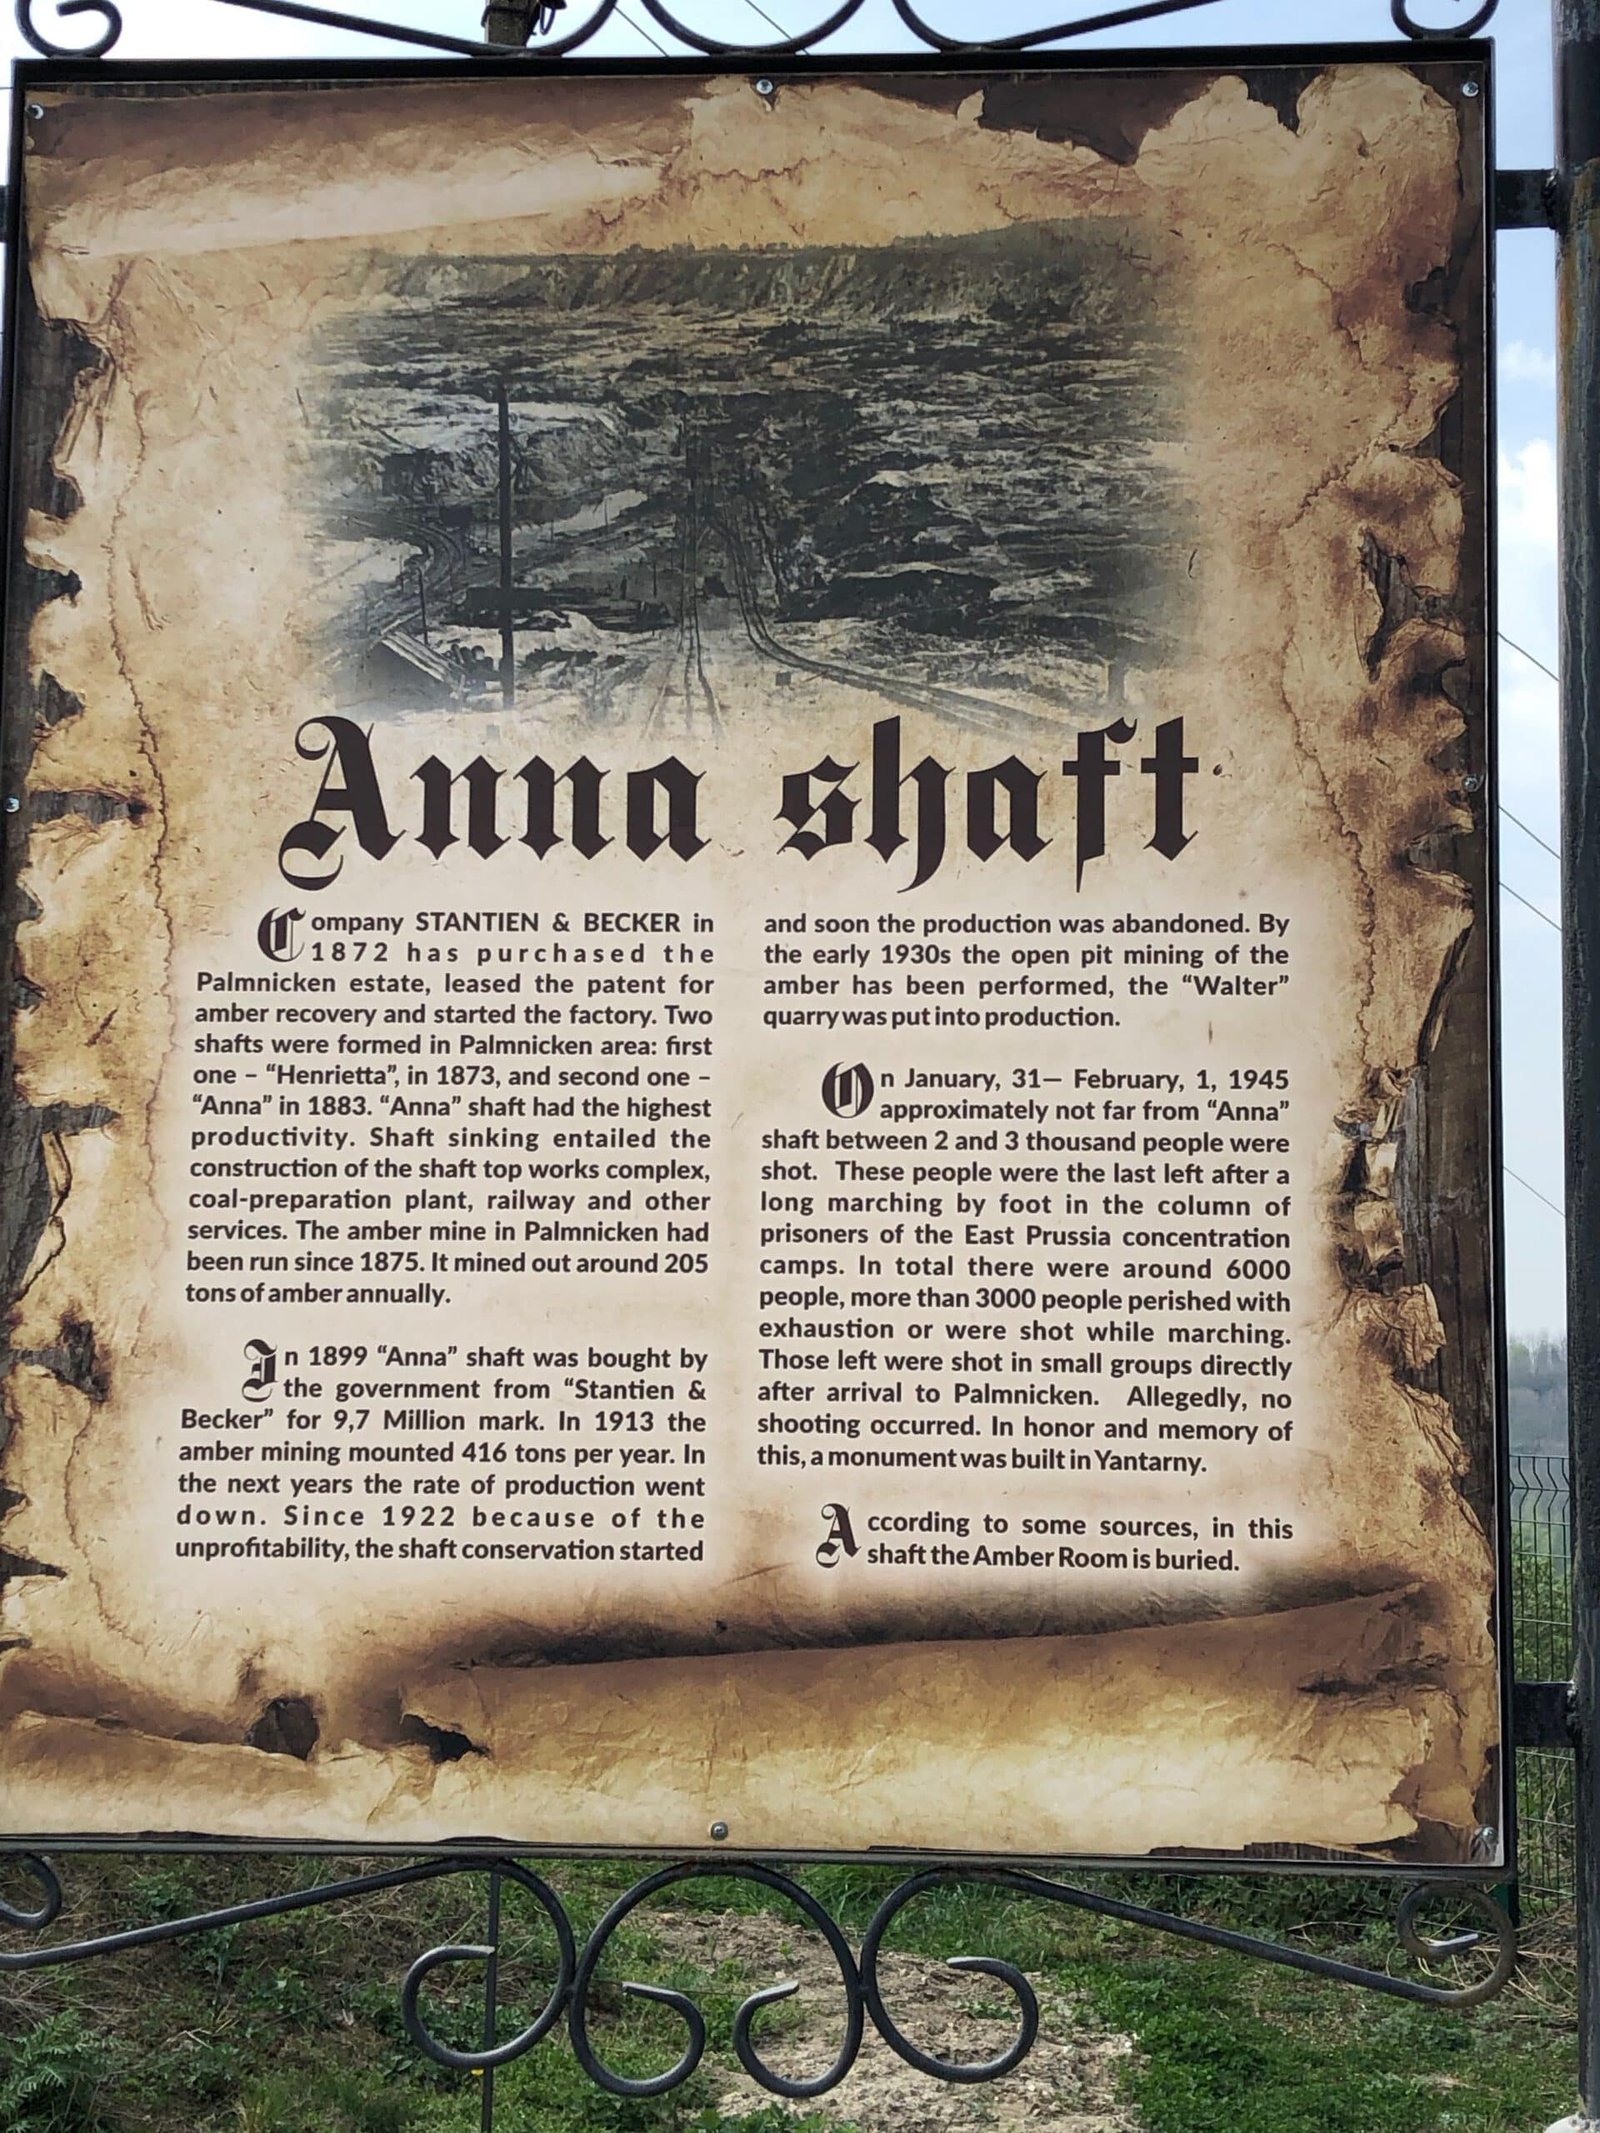 Anna shaft
Company STANTIEN & BECKER in
1872 has purchased the
Palmnicken estate, leased the patent for
amber recovery and started the factory. Two
shafts were formed in Palmnicken area: first
one – “Henrietta”, in 1873, and second one –
“Anna” in 1883. “Anna” shaft had the highest
productivity. Shaft sinking entailed the
construction of the shaft top works complex,
coal-preparation plant, railway and other
services. The amber mine in Palmnicken had
been run since 1875. It mined out around 205
tons of amber annually.
In 1899 “Anna” shaft was bought by
the government from “Stantien &
Becker” for 9,7 Million mark. In 1913 the
amber mining mounted 416 tons per year. In
the next years the rate of production went
down. Since 1922 because of the
unprofitability, the shaft conservation started
and soon the production was abandoned. By
the early 1930s the open pit mining of the
amber has been performed, the “Walter”
quarry was put into production.
On January, 31— February, 1, 1945
approximately not far from “Anna”
shaft between 2 and 3 thousand people were
shot. These people were the last left after a
long marching by foot in the column of
prisoners of the East Prussia concentration
camps. In total there were around 6000
people, more than 3000 people perished with
exhaustion or were shot while marching.
Those left were shot in small groups directly
after arrival to Palmnicken. Allegedly, no
shooting occurred. In honor and memory of
this, a monument was built in Yantarny.
According to some sources, in this
shaft the Amber Room is buried.